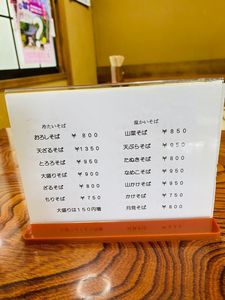 冷たいそば
おろしそば ￥８００
天ざるそば ￥１３５０
とろろそば ￥９５０
大盛りそば ￥９５０
ざるそば ￥８００
もりそば ￥７５０
大盛りは１５０円増
温かいそば
山菜そば ￥８５０
天ぷらそば ￥９５０
たぬきそば ￥８００
なめこそば ￥９５０
山かけそば ￥９５０
かけそば ￥７５０
月見そば ￥８００